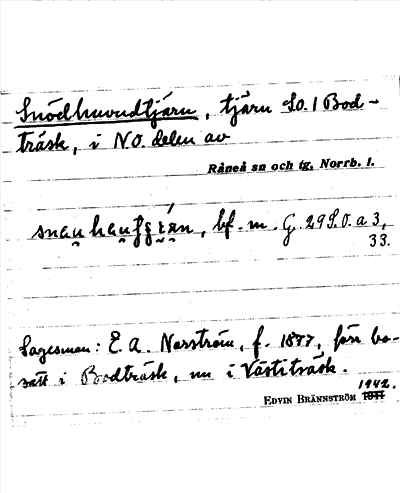 Snödhuvudtjärn, tjärn SO. I Bod-
träsk, i NO. delen av
Råneå sn och tg, Norrb. l.
bf. m. G. 29 S.O. a 3,
33.
Sagesman: E. A. Norström, f. 1877, förr bo-
satt i Bodträsk, nu i Västiträsk.
1942.
EDVIN BRÄNNSTRÖM 1941